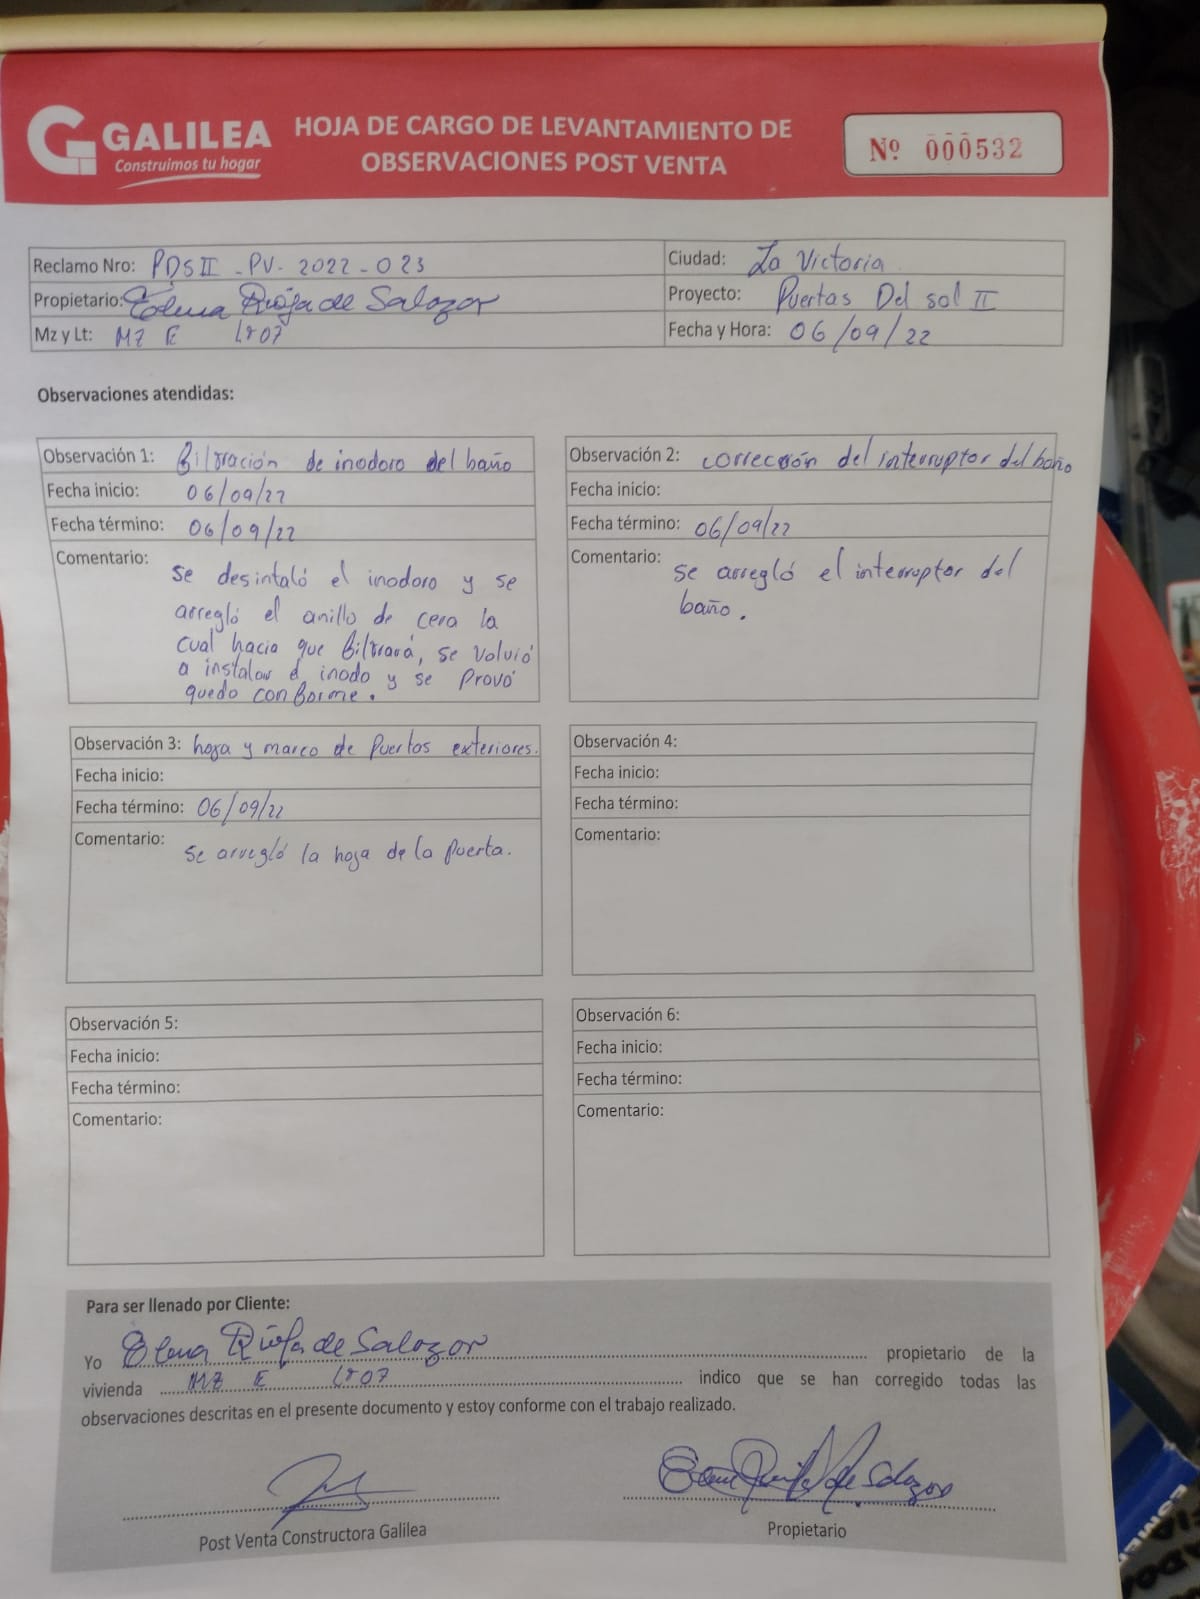 GALILEA
Construimos tu hogar
HOJA DE CARGO DE LEVANTAMIENTO DE
OBSERVACIONES POST VENTA
Nº 000532
Reclamo Nro: PDSII - PV. 2022 - 023
Ciudad: La Victoria
Propietario: Elena Rioja de Salazar
Proyecto: Puertas Del sol II
Mz y Lt: MZ E Lt 07
Fecha y Hora: 06/09/22
Observaciones atendidas:
Observación 1: filtración de inodoro del baño
Fecha inicio: 06/09/22
Fecha término: 06/09/22
Comentario: se desintaló el inodoro y se
arregló el anillo de cera la
cual hacia que filtrará, se volvió
a instalar el inodo y se provó
quedo conforme.
Observación 2: corrección del interruptor del baño
Fecha inicio:
Fecha término: 06/09/22
Comentario: se arregló el interruptor del
baño.
Observación 3: hoja y marco de puertas exteriores.
Fecha inicio:
Fecha término: 06/09/22
Comentario: se arregló la hoja de la puerta.
Observación 4:
Fecha inicio:
Fecha término:
Comentario:
Observación 5:
Fecha inicio:
Fecha término:
Comentario:
Observación 6:
Fecha inicio:
Fecha término:
Comentario:
Para ser llenado por Cliente:
Yo Elena Rioja de Salazar propietario de la
vivienda MZ E Lt 07 indico que se han corregido todas las
observaciones descritas en el presente documento y estoy conforme con el trabajo realizado.
Post Venta Constructora Galilea
Propietario